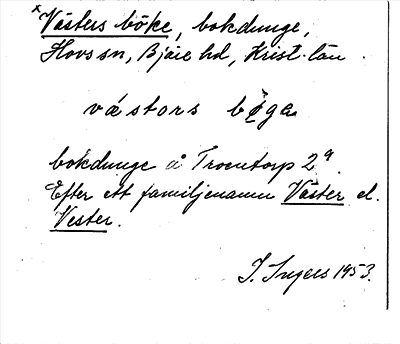 x Västers böke, bokdunge,
Hovs sn, Bjäre hd, Krist. län.
västors bøga
bokdunge å Troentorp 2ª.
Efter ett familjenamn Väster el.
Vester.
I. Ingers 1953.